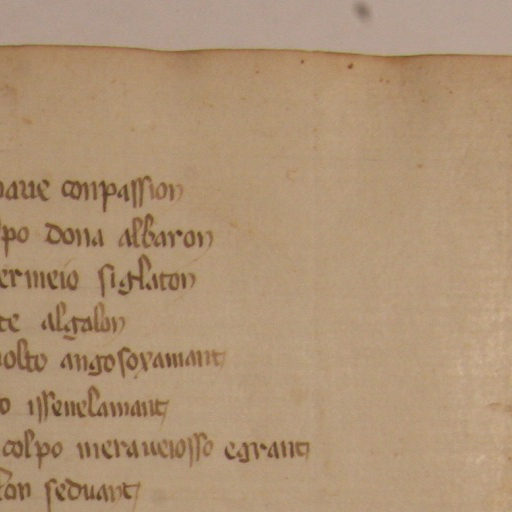 conpassion
po dona albaron
ermeio siglaton
te algalon
olto angosoxamant
o issenelamant
colpo meraueiosso egrant
on seduant